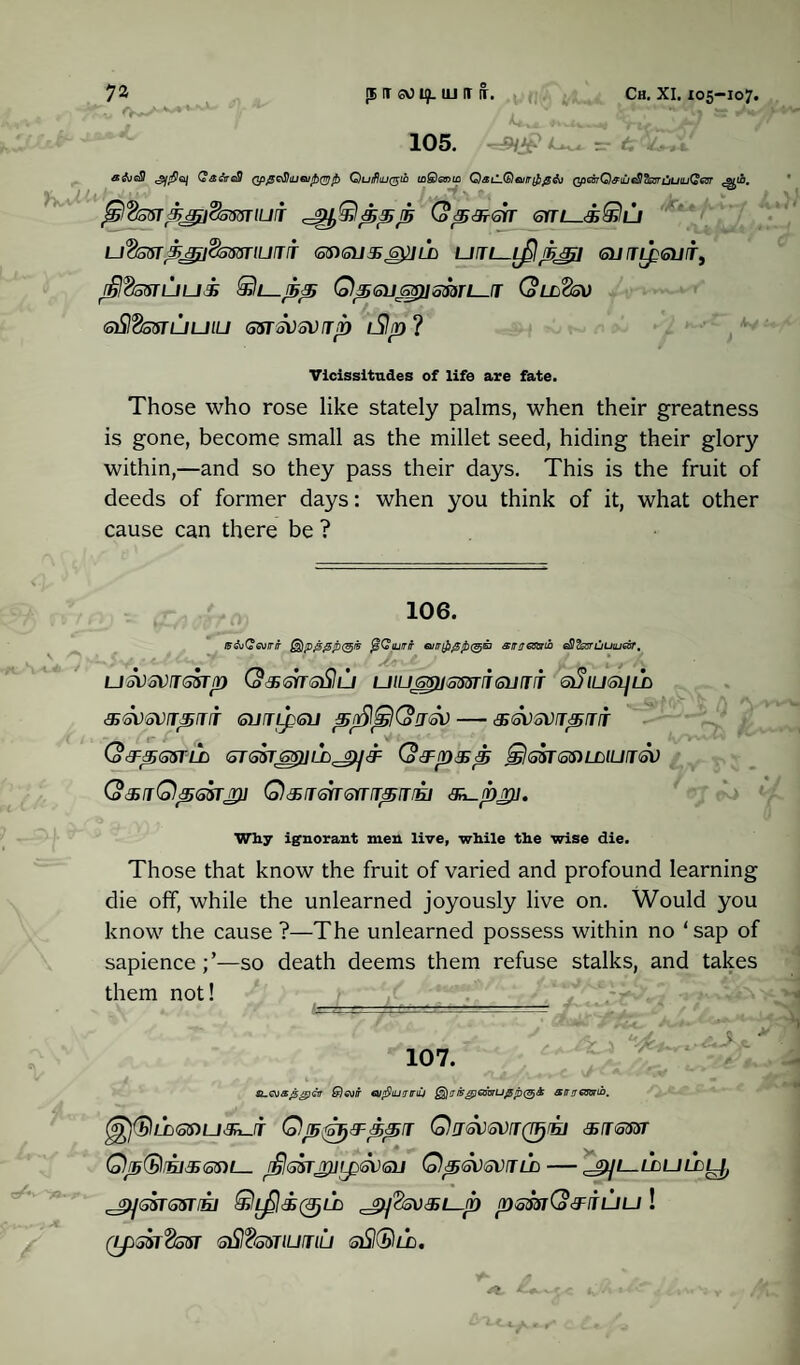 72 நாலடியார். CH. XI. 105-107.
105.
கல்வி அறிவு கேள்வி முதலியவற்றாற் பெரியரும் மடுமைம
தினைத்துணையர் ஆகித்தந் தேசுள் ளடக்கிப்
பனைத்துணையார் வைகலும் பாடழிந்து வாழ்வர்,
நினைப்பக் கிடந்த தெவனுண்டா மேலை
வினைப்பய னல்லாற் பிற ?
Vicissitudes of life are fate.
Those who rose like stately palms, when their greatness
is gone, become small as the millet seed, hiding their glory
within,—and so they pass their days. This is the fruit of
deeds of former days: when you think of it, what other
cause can there be ?
106.
நல்லோர் இறத்தற்குந் தீயோர் வாழ்தற்குங் காரணம் வினைப்பயன்.
பல்லான்ற கேள்விப் பயனுணர்வார் வீயவும்
கல்லாதார் வாழ்வ தறிதிரேல் — கல்லாதார்
சேதனம் என்னுமச் சேறகத் தின்மையால்
கோதென்று கொள்ளாதாங் கூற்று.
Why ignorant men live, while the wise die.
Those that know the fruit of varied and profound learning
die off, while the unlearned joyously live on. Would you
know the cause ?—The unlearned possess within no ‘sap of
sapience ;’—so death deems them refuse stalks, and takes
them not!
107.
உலகத்துள் சிலர் வறியராய் இரந்துண்பதற்குக் காரணம்.
இடும்பைகூர் நெஞ்சத்தா ரெல்லாருங் காண
நெடுங்கடை நின்றுழல்வ தெல்லாம் — அடம்பம்பூ
அன்னங் கிழிக்கும் அலைகடற் றண்சேர்ப்ப !
முன்னை வினையாய் விடும்.